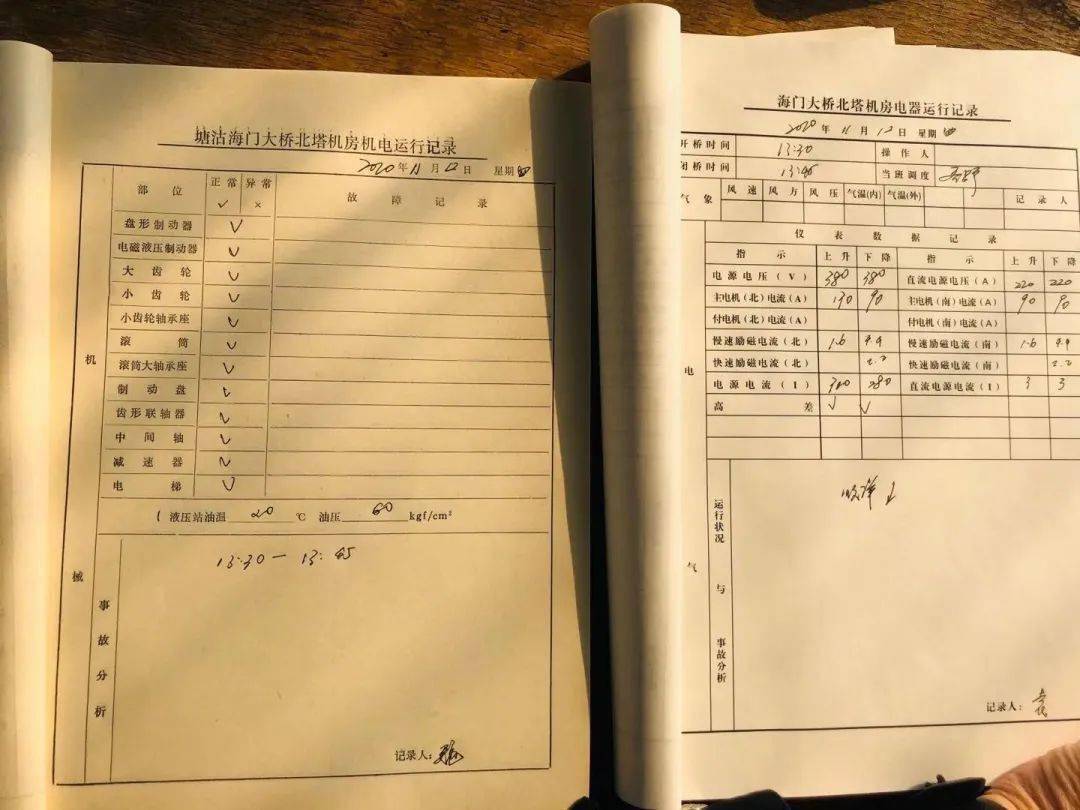 塘沽海门大桥北塔机房机电运行记录
2020年11月12日 星期四
部位 正常 异常 故障记录
✓ ×
盘形制动器 ✓
电磁液压制动器 ✓
大齿轮 ✓
小齿轮 ✓
小齿轮轴承座 ✓
滚筒 ✓
滚筒大轴承座 ✓
制动盘 ✓
齿形联轴器 ✓
中间轴 ✓
减速器 ✓
电梯 ✓
机械
液压站油温 20 ℃ 油压 60 kgf/cm²
13:30 — 13:45
事故分析
记录人:
海门大桥北塔机房电器运行记录
2020年11月12日 星期四
开桥时间 13:30 操作人
闭桥时间 13:45 当班调度
气象 风速 风方 风压 气温(内) 气温(外) 记录人
仪表数据记录
指示 上升 下降 指示 上升 下降
电源电压(V) 380 380 直流电源电压(A) 220 220
主电机(北)电流(A) 130 90 主电机(南)电流(A) 90 90
付电机(北)电流(A) 付电机(南)电流(A)
慢速励磁电流(北) 1.6 4.9 慢速励磁电流(南) 1.6 4.9
快速励磁电流(北) 2.2 快速励磁电流(南) 2.2
电源电流(I) 300 280 直流电源电流(I) 3 3
高差 ✓ ✓
电气
运行状况与事故分析
记录人: